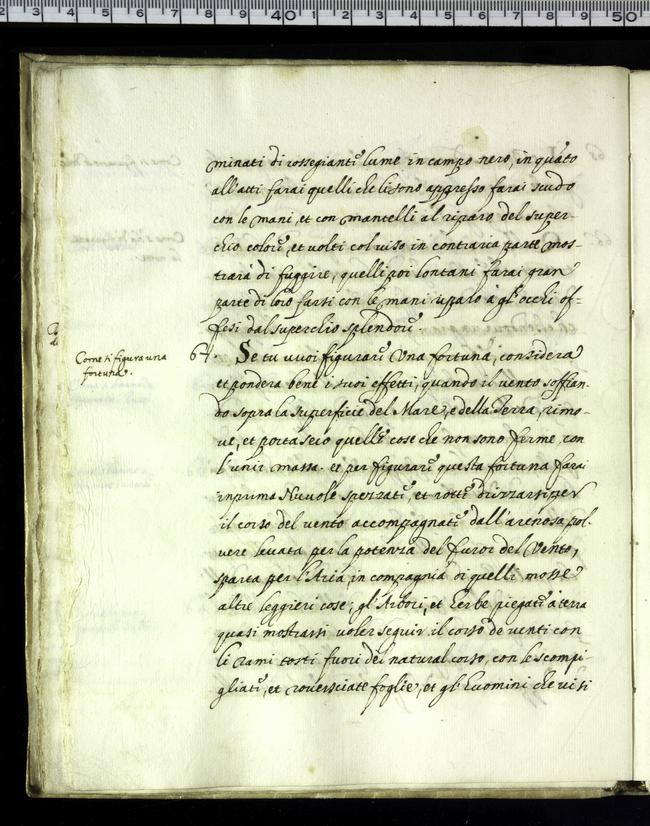 minati di rossegiante lume in campo nero, in quãto
all'atti farai quelli che li sono appresso farsi scudo
con le mani, et con mantelli al riparo del super-
chio colore, et volti col viso in contraria parte mos-
trara di fuggire, quelli poi lontani farai gran
parte di loro farsi con le mani riparo à gl'occhi of-
fesi dal superchio splendore.
Come si figura una
fortuna.
67. Se tu vuoi figurare Una fortuna, considera
et pondera bene i suoi effetti, quando il vento soffian-
do sopra la superficie del Mare, e della Terra, rimo-
ve, et porta seco quelle cose che non sono ferme con
l'unir massa. et per figurare questa fortuna farai
in prima Nuvole spezzate, et rotte drizzarsi per
il corso del vento accompagnate dall'arenosa pol-
vere levata per la potenza del furor del Vento,
sparta per l'Aria, in compagnia di quelli mosse
altre leggieri cose; gl'Arbori, et herbe piegati à terra
quasi mostrarsi voler seguir il corso de venti con
li Rami torti fuori del natural corso, con le scompi-
gliate, et roversciate foglie, et gl'huomini che vi si